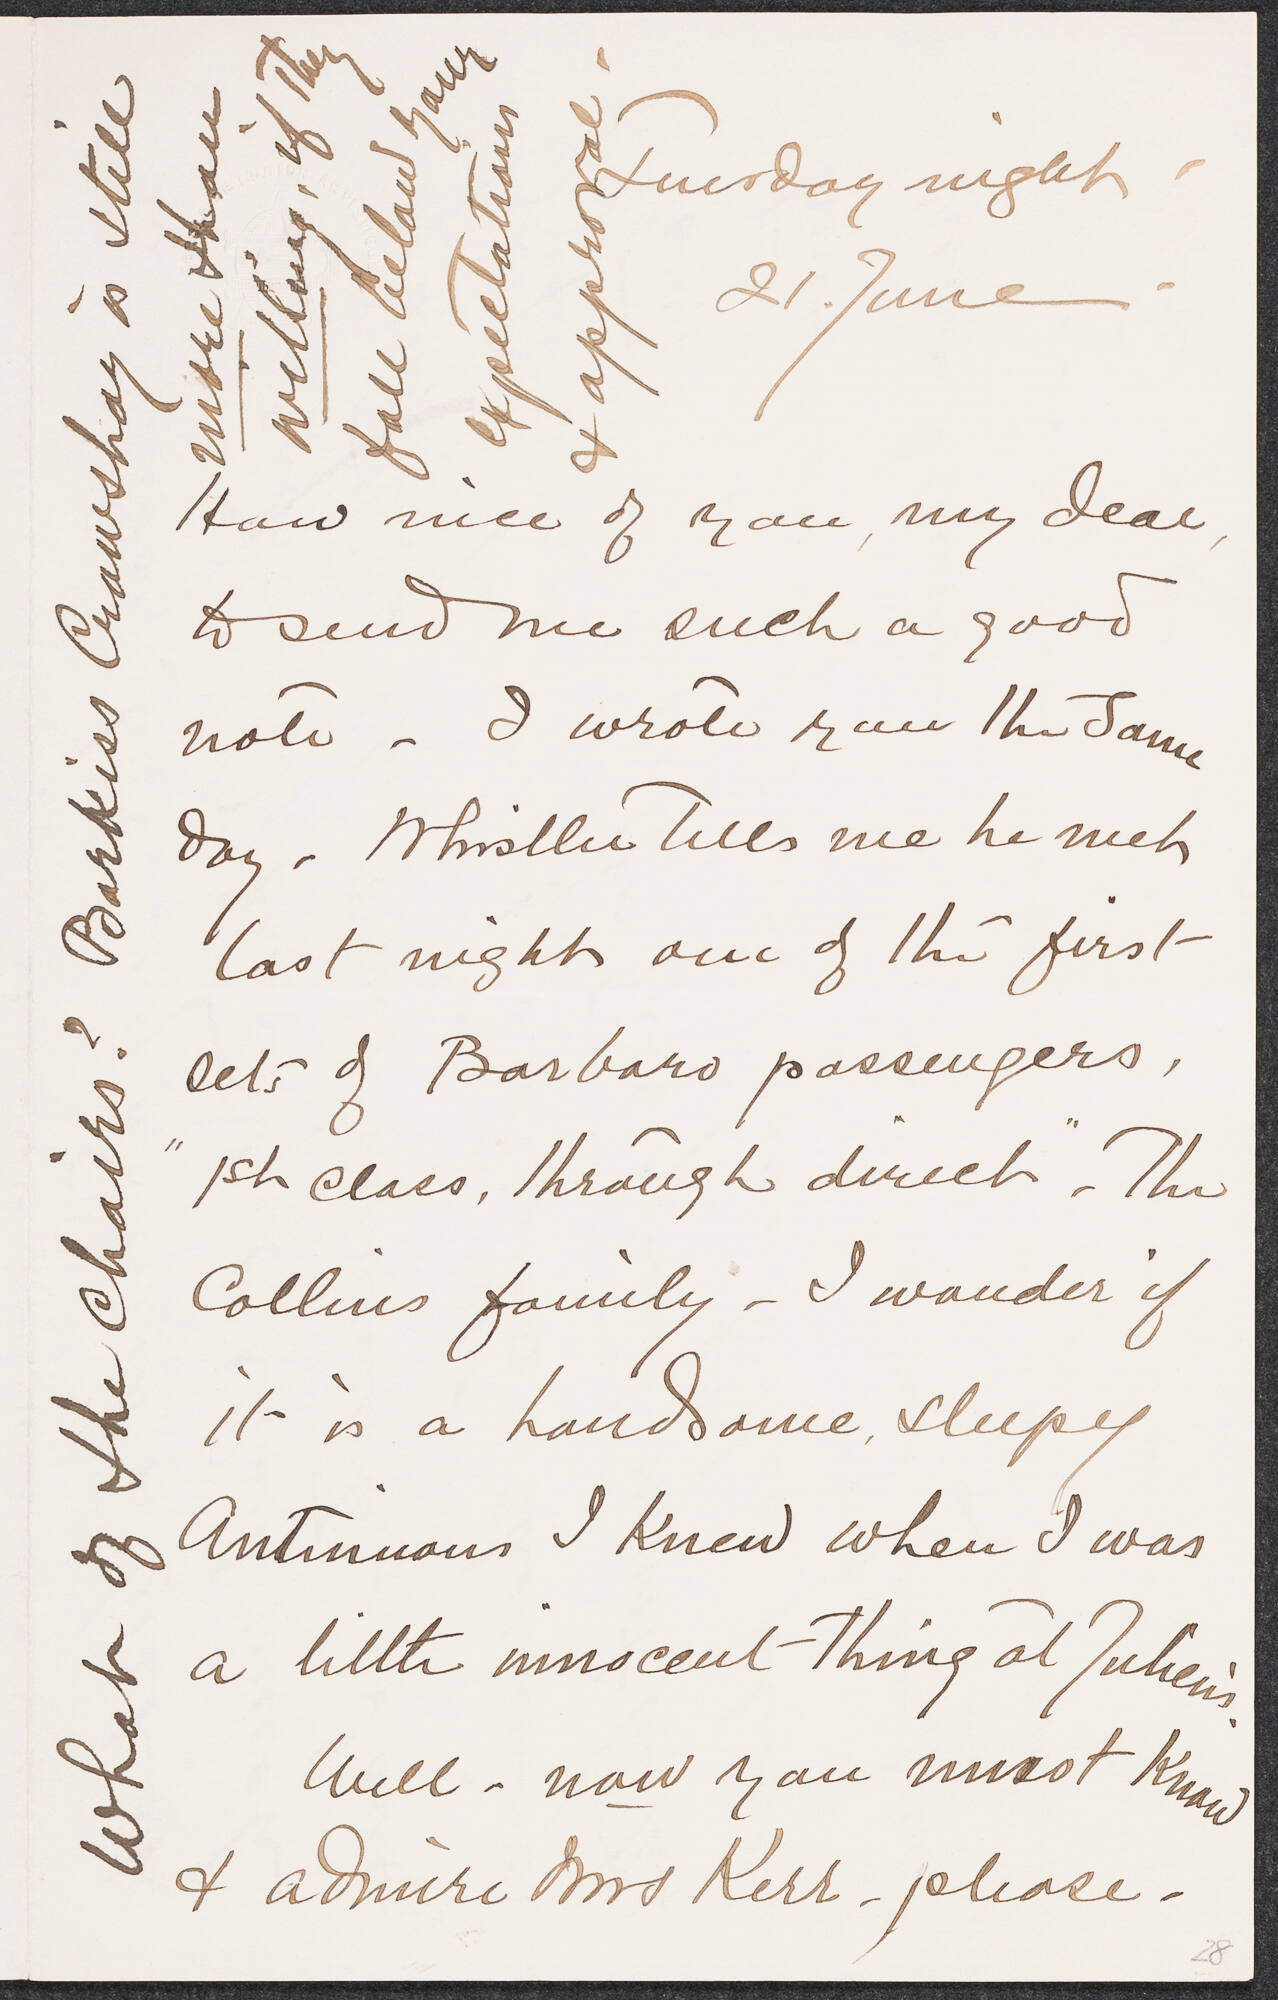 Tuesday night.
21. June.
How nice of you, my dear,
to send me such a good
note - I wrote you the same
day - Whistler tells me he met
last night one of the first
sets of Barbaro passengers,
"1st class, through direct" - The
Collins family - I wonder if
it is a handsome, sleepy
Antinuous I knew when I was
a little innocent thing at Julien's.
Well - now you must know
& admire Mrs Kerr - please -
What of the chairs? Barkiss Crawshay is still
more than
willing, if they
fall below your
expectations
& approval.
28